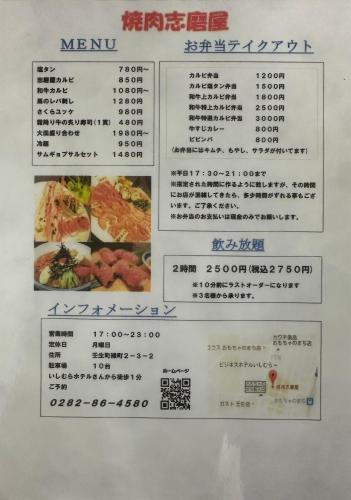 焼肉志磨屋
MENU
塩タン 780円～
志磨屋カルビ 850円
和牛カルビ 1080円～
馬のレバ刺し 1280円
さくらユッケ 980円
霜降り牛の炙り寿司(1貫) 480円
大皿盛り合わせ 1980円～
冷麺 950円
サムギョプサルセット 1480円
お弁当テイクアウト
カルビ弁当 1200円
カルビ塩タン弁当 1500円
和牛上カルビ弁当 1800円
和牛特上カルビ弁当 2500円
和牛特選カルビ弁当 3000円
牛すじカレー 800円
ビビンバ 800円
(お弁当にはキムチ、もやし、サラダが付いてます)
※平日17:30～21:00まで
※指定された時間に作るように致しますが、その時間
にお店が混雑してきたら、多少時間がずれる事もござ
います。ご了承ください。
※お弁当のお支払いは現金のみでお願いします。
飲み放題
2時間 2500円(税込2750円)
※10分前にラストオーダーになります
※3名様から承ります。
インフォメーション
営業時間 17:00～23:00
定休日 月曜日
住所 壬生町緑町2-3-2
駐車場 10台
いしむらホテルさんから徒歩1分
ご予約
0282-86-4580
ホームページ
カワチ薬品
おもちゃのまち店
ココス おもちゃのまち店
ビジネスホテルいしむら
焼肉志磨屋
おもちゃのまち
ガスト 壬生店